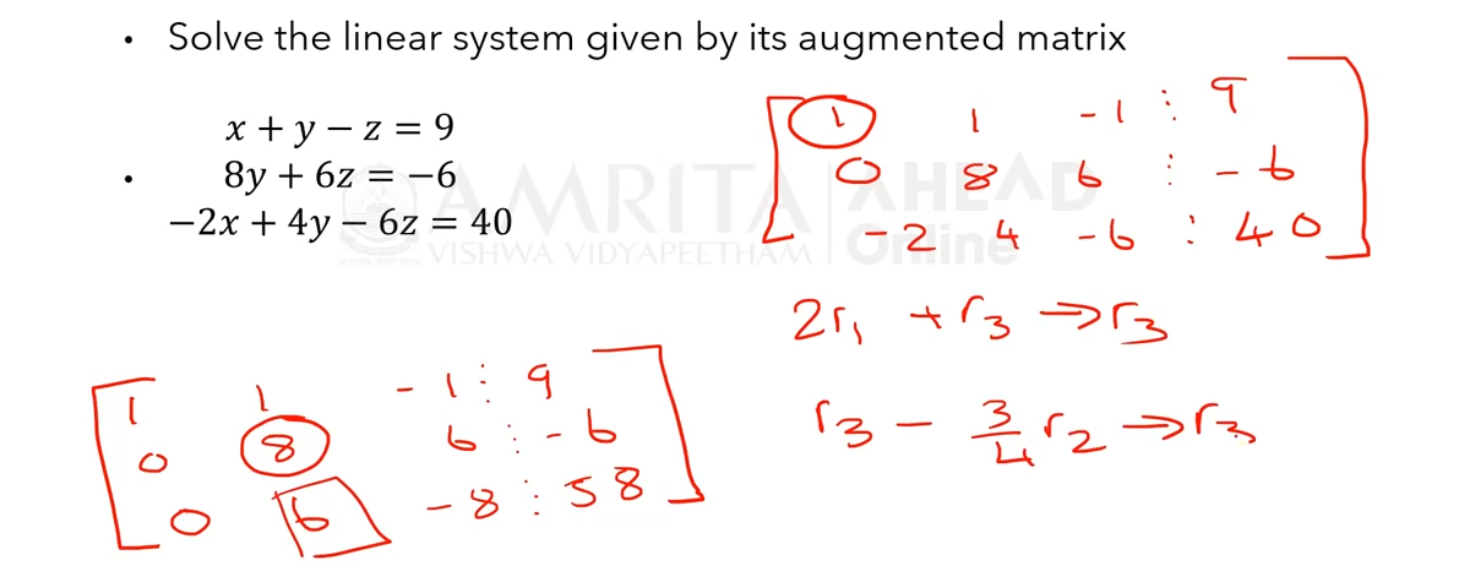 • Solve the linear system given by its augmented matrix
x + y − z = 9
• 8y + 6z = −6
−2x + 4y − 6z = 40
AMRITA AHEAD
VISHWA VIDYAPEETHAM Online
1 1 -1 : 9
0 8 6 : -6
-2 4 -6 : 40
2r₁ + r₃ → r₃
r₃ - 3/4 r₂ → r₃
1 1 -1 : 9
0 8 6 : -6
0 6 -8 : 58